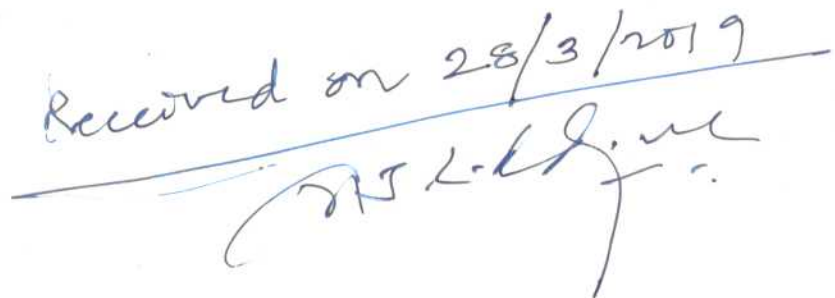 Received on 28/3/2019